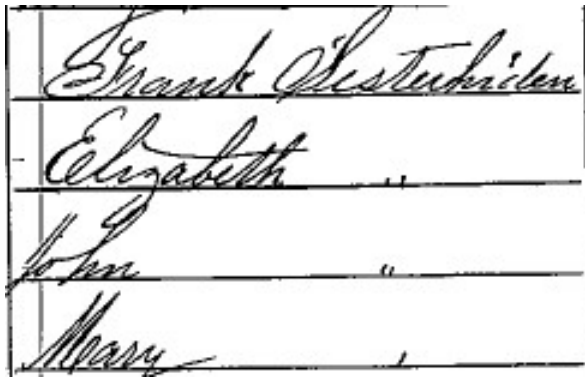 Frank Oesterheiden
Elizabeth "
John "
Mary "